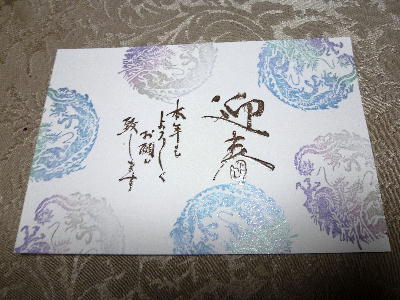 迎春
本年も
よろしく
お願い
致します